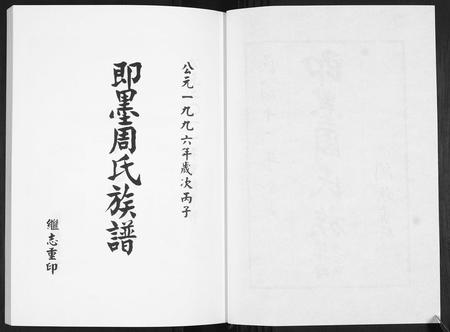 公元一九九六年歲次丙子
即墨周氏族譜
繼志重印